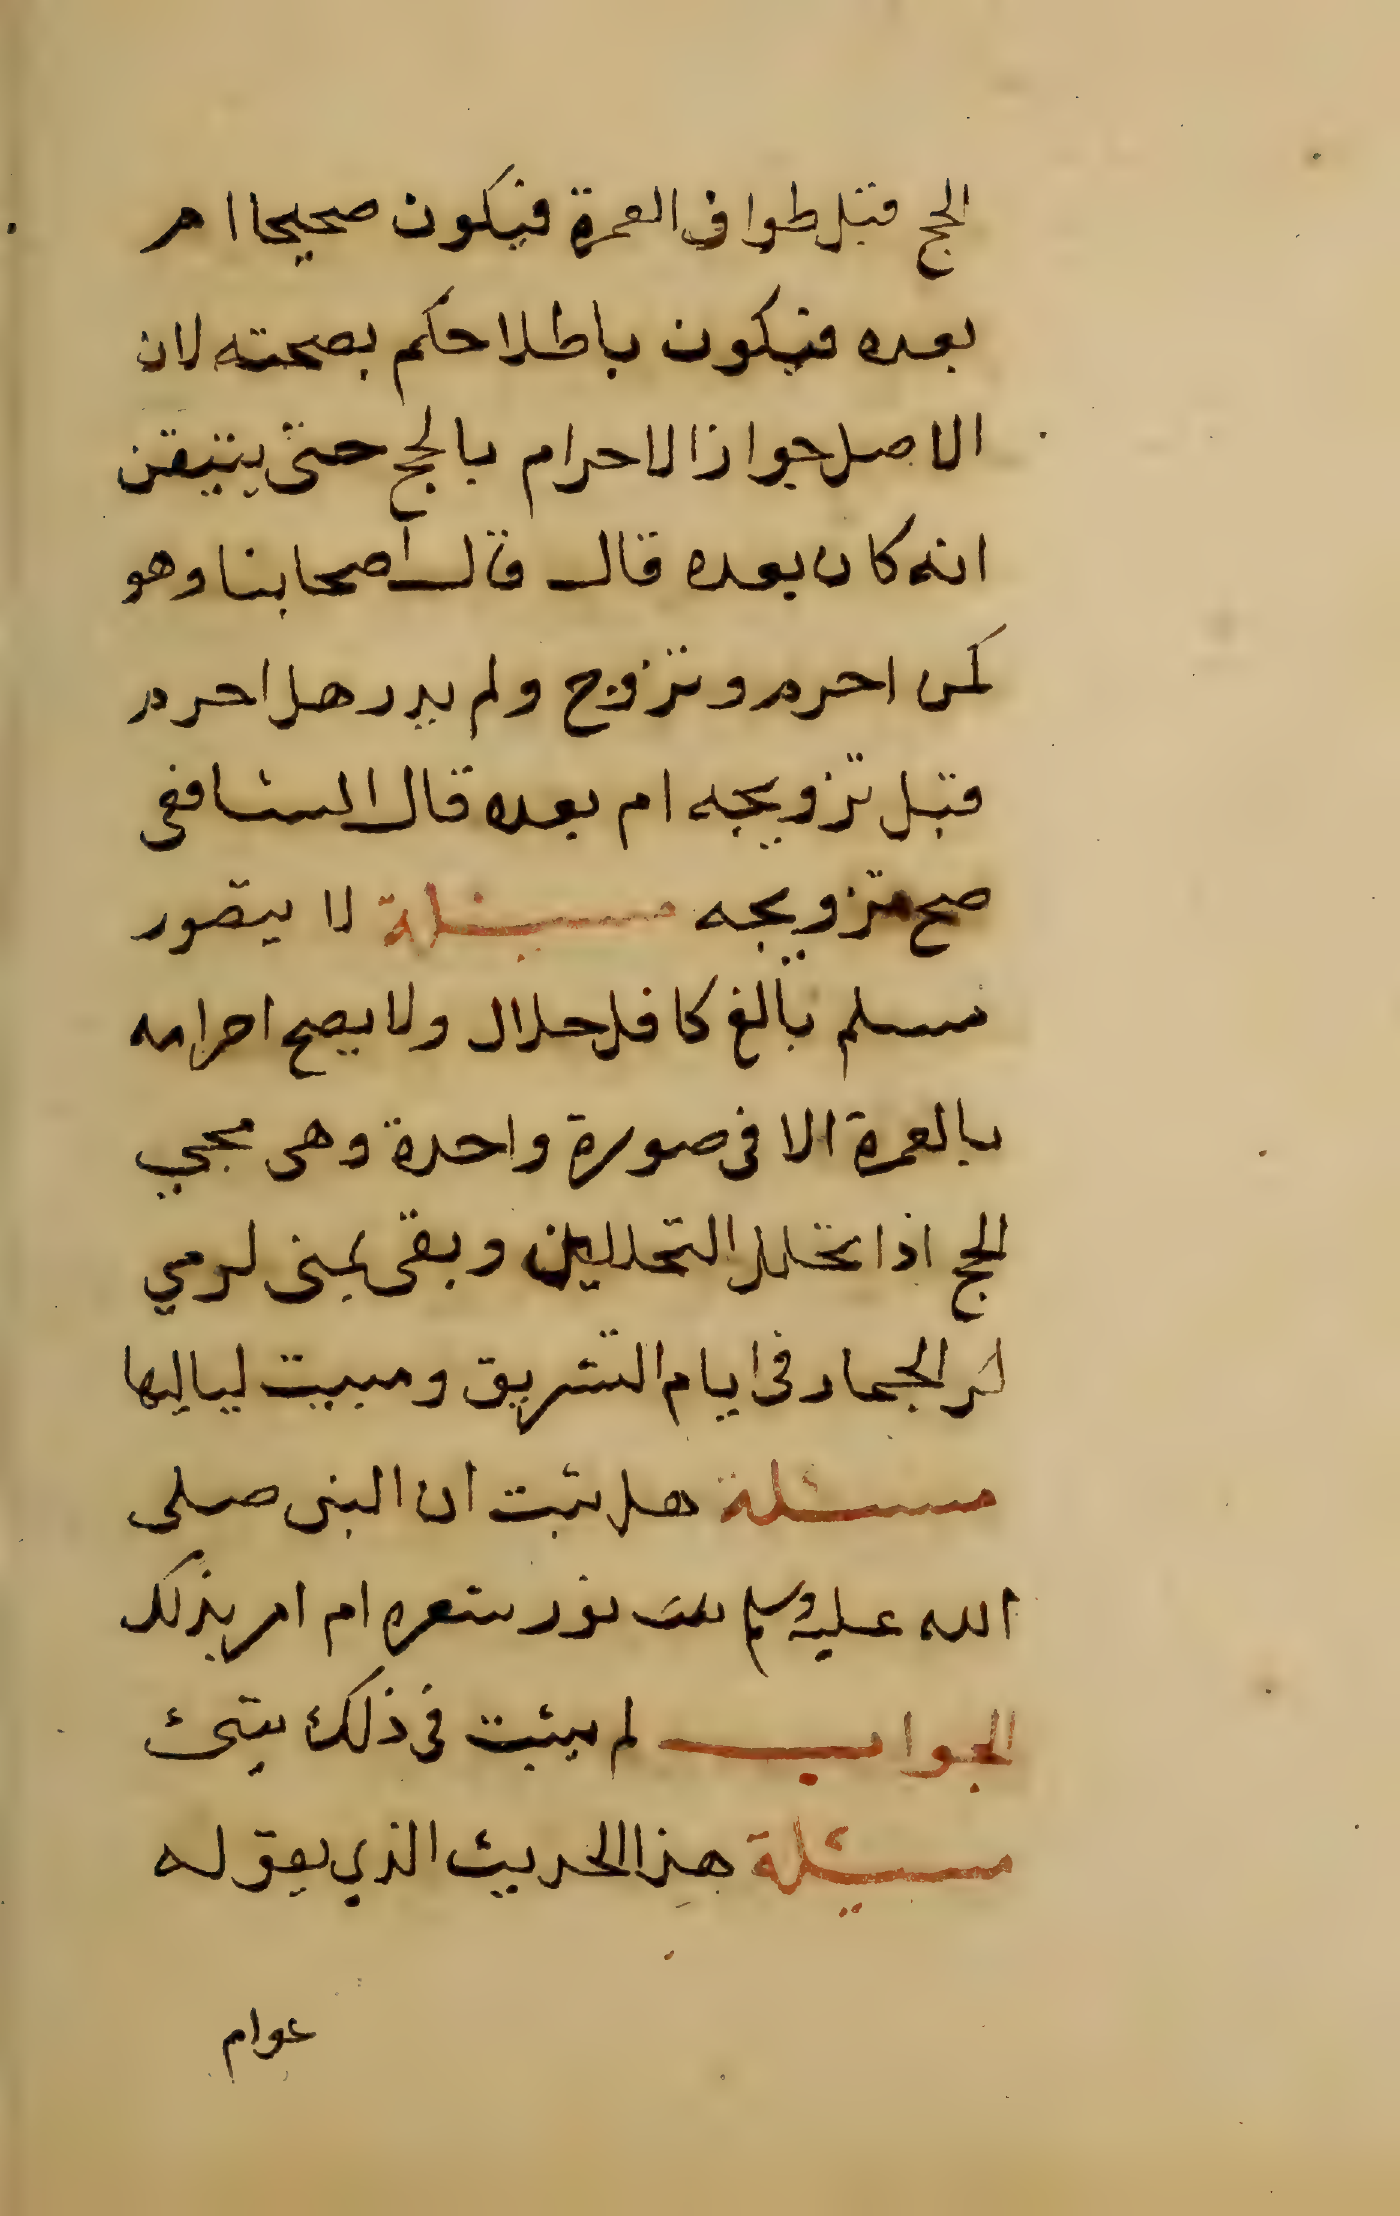 الحج قبل طواف العمرة فيكون صحيحا ام
بعده فيكون باطلا حكم بصحته لان
الاصل جواز الاحرام بالحج حتى يتيقن
انه كان بعده قال قال اصحابنا وهو
كمن احرم وتزوج ولم يدر هل احرم
قبل تزويجه ام بعده قال الشافعى
صح تزويجه مسئلة لا يتصور
مسلم بالغ كافل حلال ولا يصح احرامه
بالعمرة الا فى صورة واحدة وهى محجي
الحج اذا تحلل التحللين وبقى بمنى لرمي
الجمار فى ايام التشريق ومبيت لياليها
مسئلة هل ثبت ان النبى صلى
الله عليه وسلم نور شعره ام امر بذلك
الجواب لم يثبت فى ذلك شىء
مسئلة هذا الحديث الذي يقوله
عوام